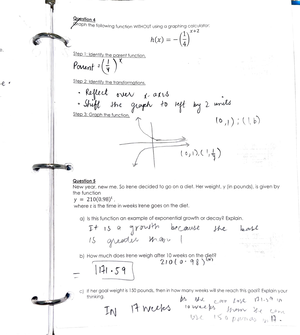 Question 4
Graph the following function WITHOUT using a graphing calculator:
h(x) = -(1/4)^(x+2)
Step 1: Identify the parent function.
Parent: (1/4)^x
Step 2: Identify the transformations.
• Reflect over x-axis
• Shift the graph to left by 2 units
Step 3: Graph the function.
Question 5
New year, new me. So Irene decided to go on a diet. Her weight, y (in pounds), is given by
the function
y = 210(0.98)^t,
where t is the time in weeks Irene goes on the diet.
a) Is this function an example of exponential growth or decay? Explain.
It is a growth because the base
is greater than 1
b) How much does Irene weigh after 10 weeks on the diet?
210(0.98)^(10)
= 171.59
c) If her goal weight is 150 pounds, then in how many weeks will she reach this goal? Explain your
thinking.
IN 17 weeks